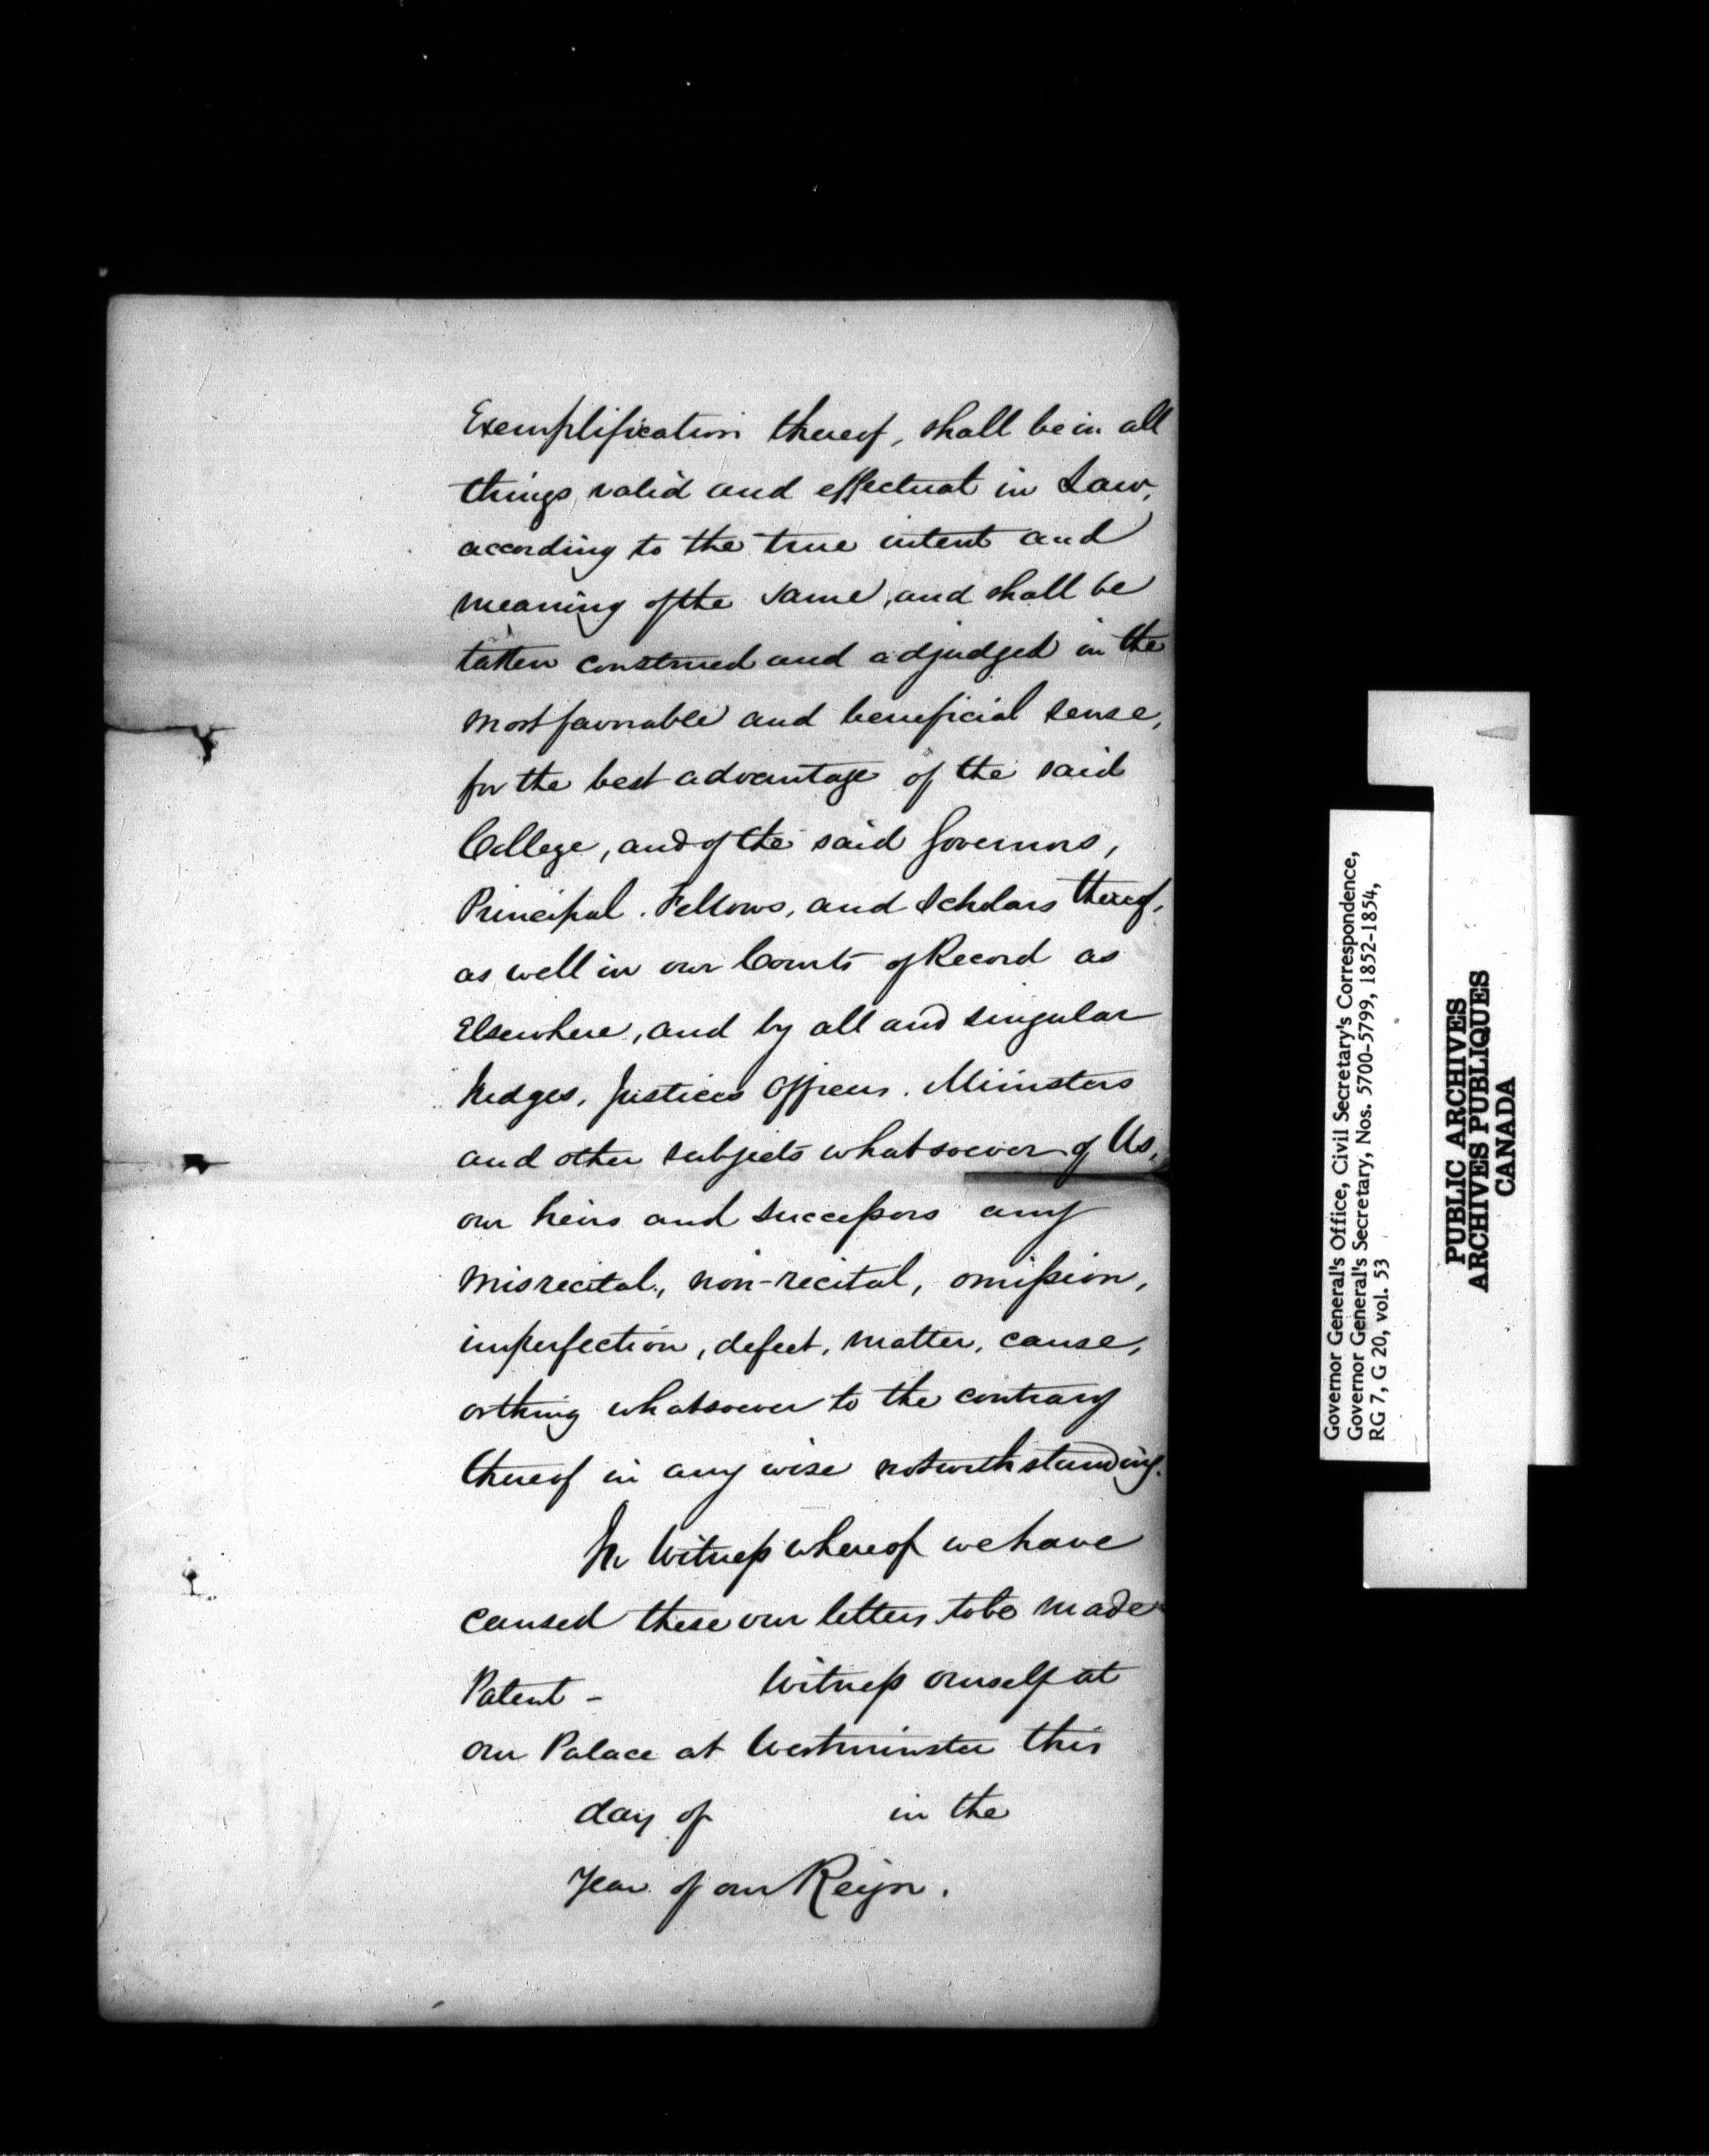 Exemplification thereof, shall be in all
things valid and effectual in Law,
according to the true intent and
meaning of the same, and shall be
taken construed and adjudged in the
most favorable and beneficial sense,
for the best advantage of the said
College, and of the said Governors,
Principal. Fellows, and Scholars thereof,
as well in our Courts of Record as
Elsewhere, and by all and singular
Judges, Justices Officers. Ministers
and other subjects whatsoever of Us,
our heirs and successors any
misrecital, non-recital, omission,
imperfection, defect, matter, cause,
or thing whatsoever to the contrary
thereof in any wise notwithstanding.
In Witness whereof we have
caused these our letters to be made
Patent - Witness ourself at
our Palace at Westminster this
day of in the
Year of our Reign.
Governor General's Office, Civil Secretary's Correspondence,
Governor General's Secretary, Nos. 5700-5799, 1852-1854,
RG 7, G 20, vol. 53
PUBLIC ARCHIVES
ARCHIVES PUBLIQUES
CANADA